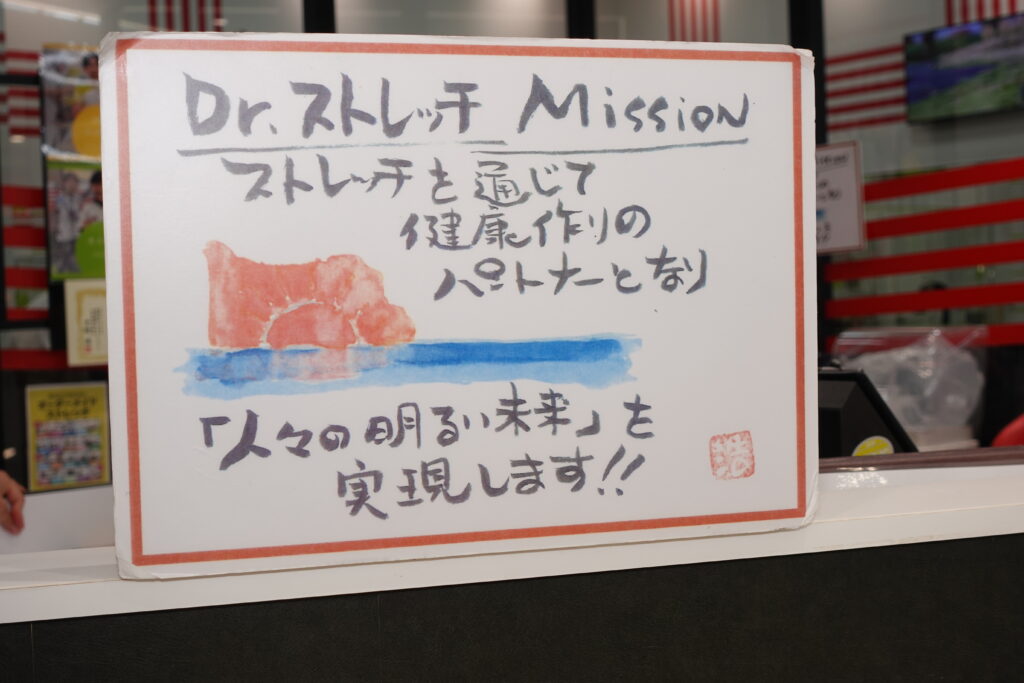 Dr.ストレッチ Mission
ストレッチを通じて
健康作りの
パートナーとなり
「人々の明るい未来」を
実現します!!